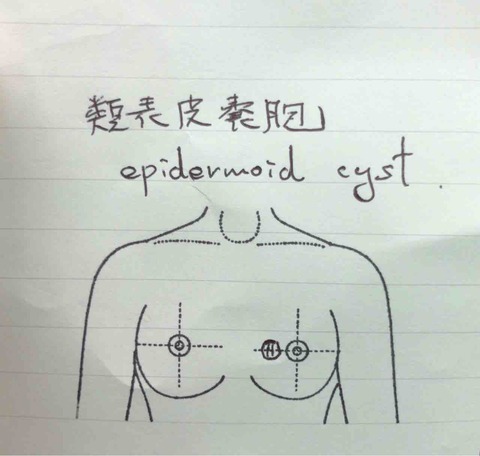 類表皮囊胞
epidermoid cyst.